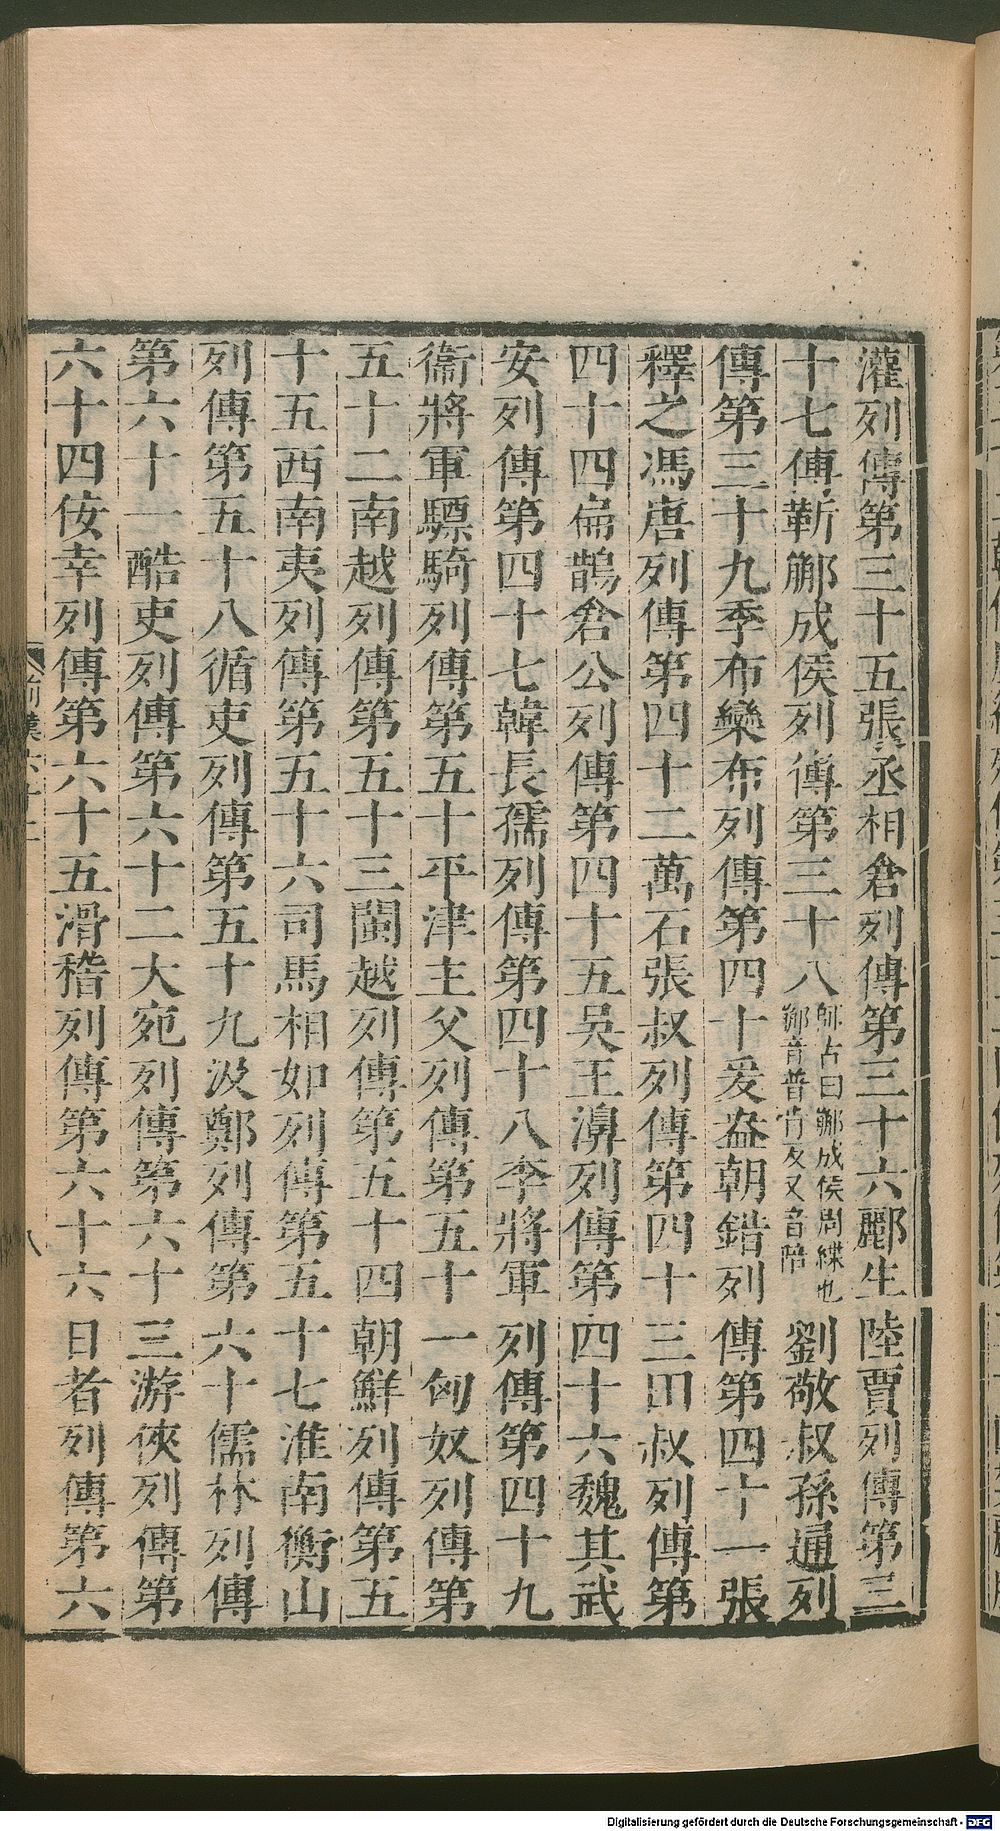 灌列傳第三十五張丞相倉列傳第三十六酈生陸賈列傳第三
十七傅靳䣙成侯列傳第三十八師古曰䣙成侯周緤也䣙音普肯反又音陪劉敬叔孫通列
傳第三十九季布欒布列傳第四十爰盎朝錯列傳第四十一張
釋之馮唐列傳第四十二萬石張叔列傳第四十三田叔列傳第
四十四扁鵲倉公列傳第四十五吳王濞列傳第四十六魏其武
安列傳第四十七韓長孺列傳第四十八李將軍列傳第四十九
衞將軍驃騎列傳第五十平津主父列傳第五十一匈奴列傳第
五十二南越列傳第五十三閩越列傳第五十四朝鮮列傳第五
十五西南夷列傳第五十六司馬相如列傳第五十七淮南衡山
列傳第五十八循吏列傳第五十九汲鄭列傳第六十儒林列傳
第六十一酷吏列傳第六十二大宛列傳第六十三游俠列傳第
六十四佞幸列傳第六十五滑稽列傳第六十六日者列傳第六
前漢六十二
八
Digitalisierung gefördert durch die Deutsche Forschungsgemeinschaft - DFG